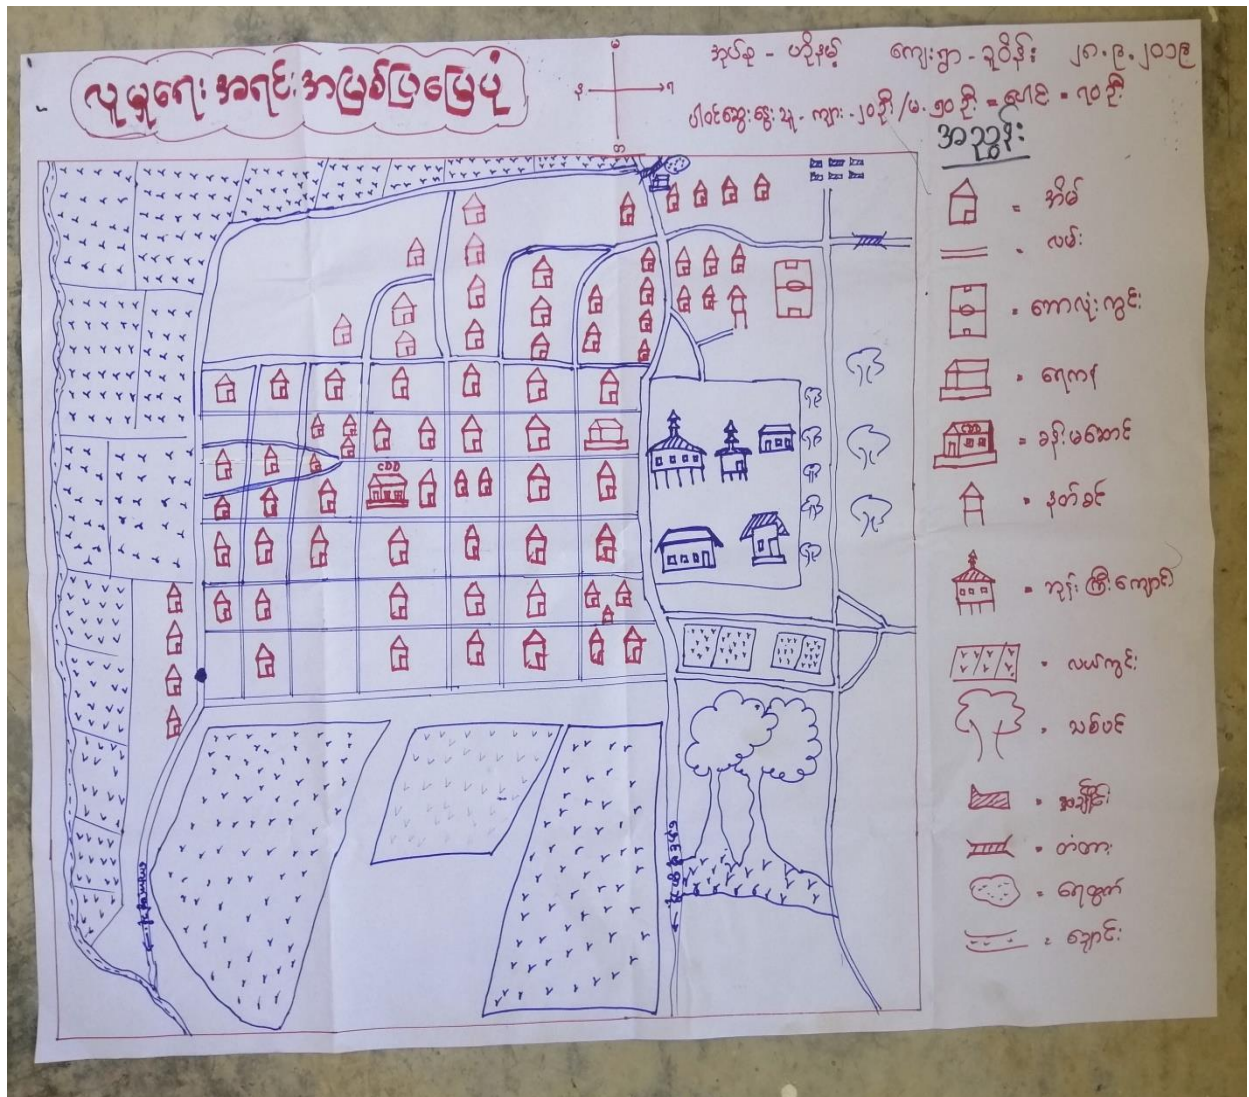 လူမှုရေးအရင်းအမြစ်ပြမြေပုံ
မ
န
ရ
တ
အုပ်စု - ဟိုနမ့် ကျေးရွာ - ခူဝိန်း ၂၈.၉.၂၀၁၉
ပါဝင်ဆွေးနွေးသူ - ကျား - ၂၀ဦး / မ - ၅၀ ဦး = ပေါင်း = ၇၀ ဦး
အညွှန်း
= အိမ်
= လမ်း
= ဘောလုံးကွင်း
= ရေကန်
= ခန်းမဆောင်
= နတ်စင်
= ဘုန်းကြီးကျောင်း
= လယ်ကွင်း
= သစ်ပင်
= တံတား
= ရေထွက်
= ချောင်း
CDD